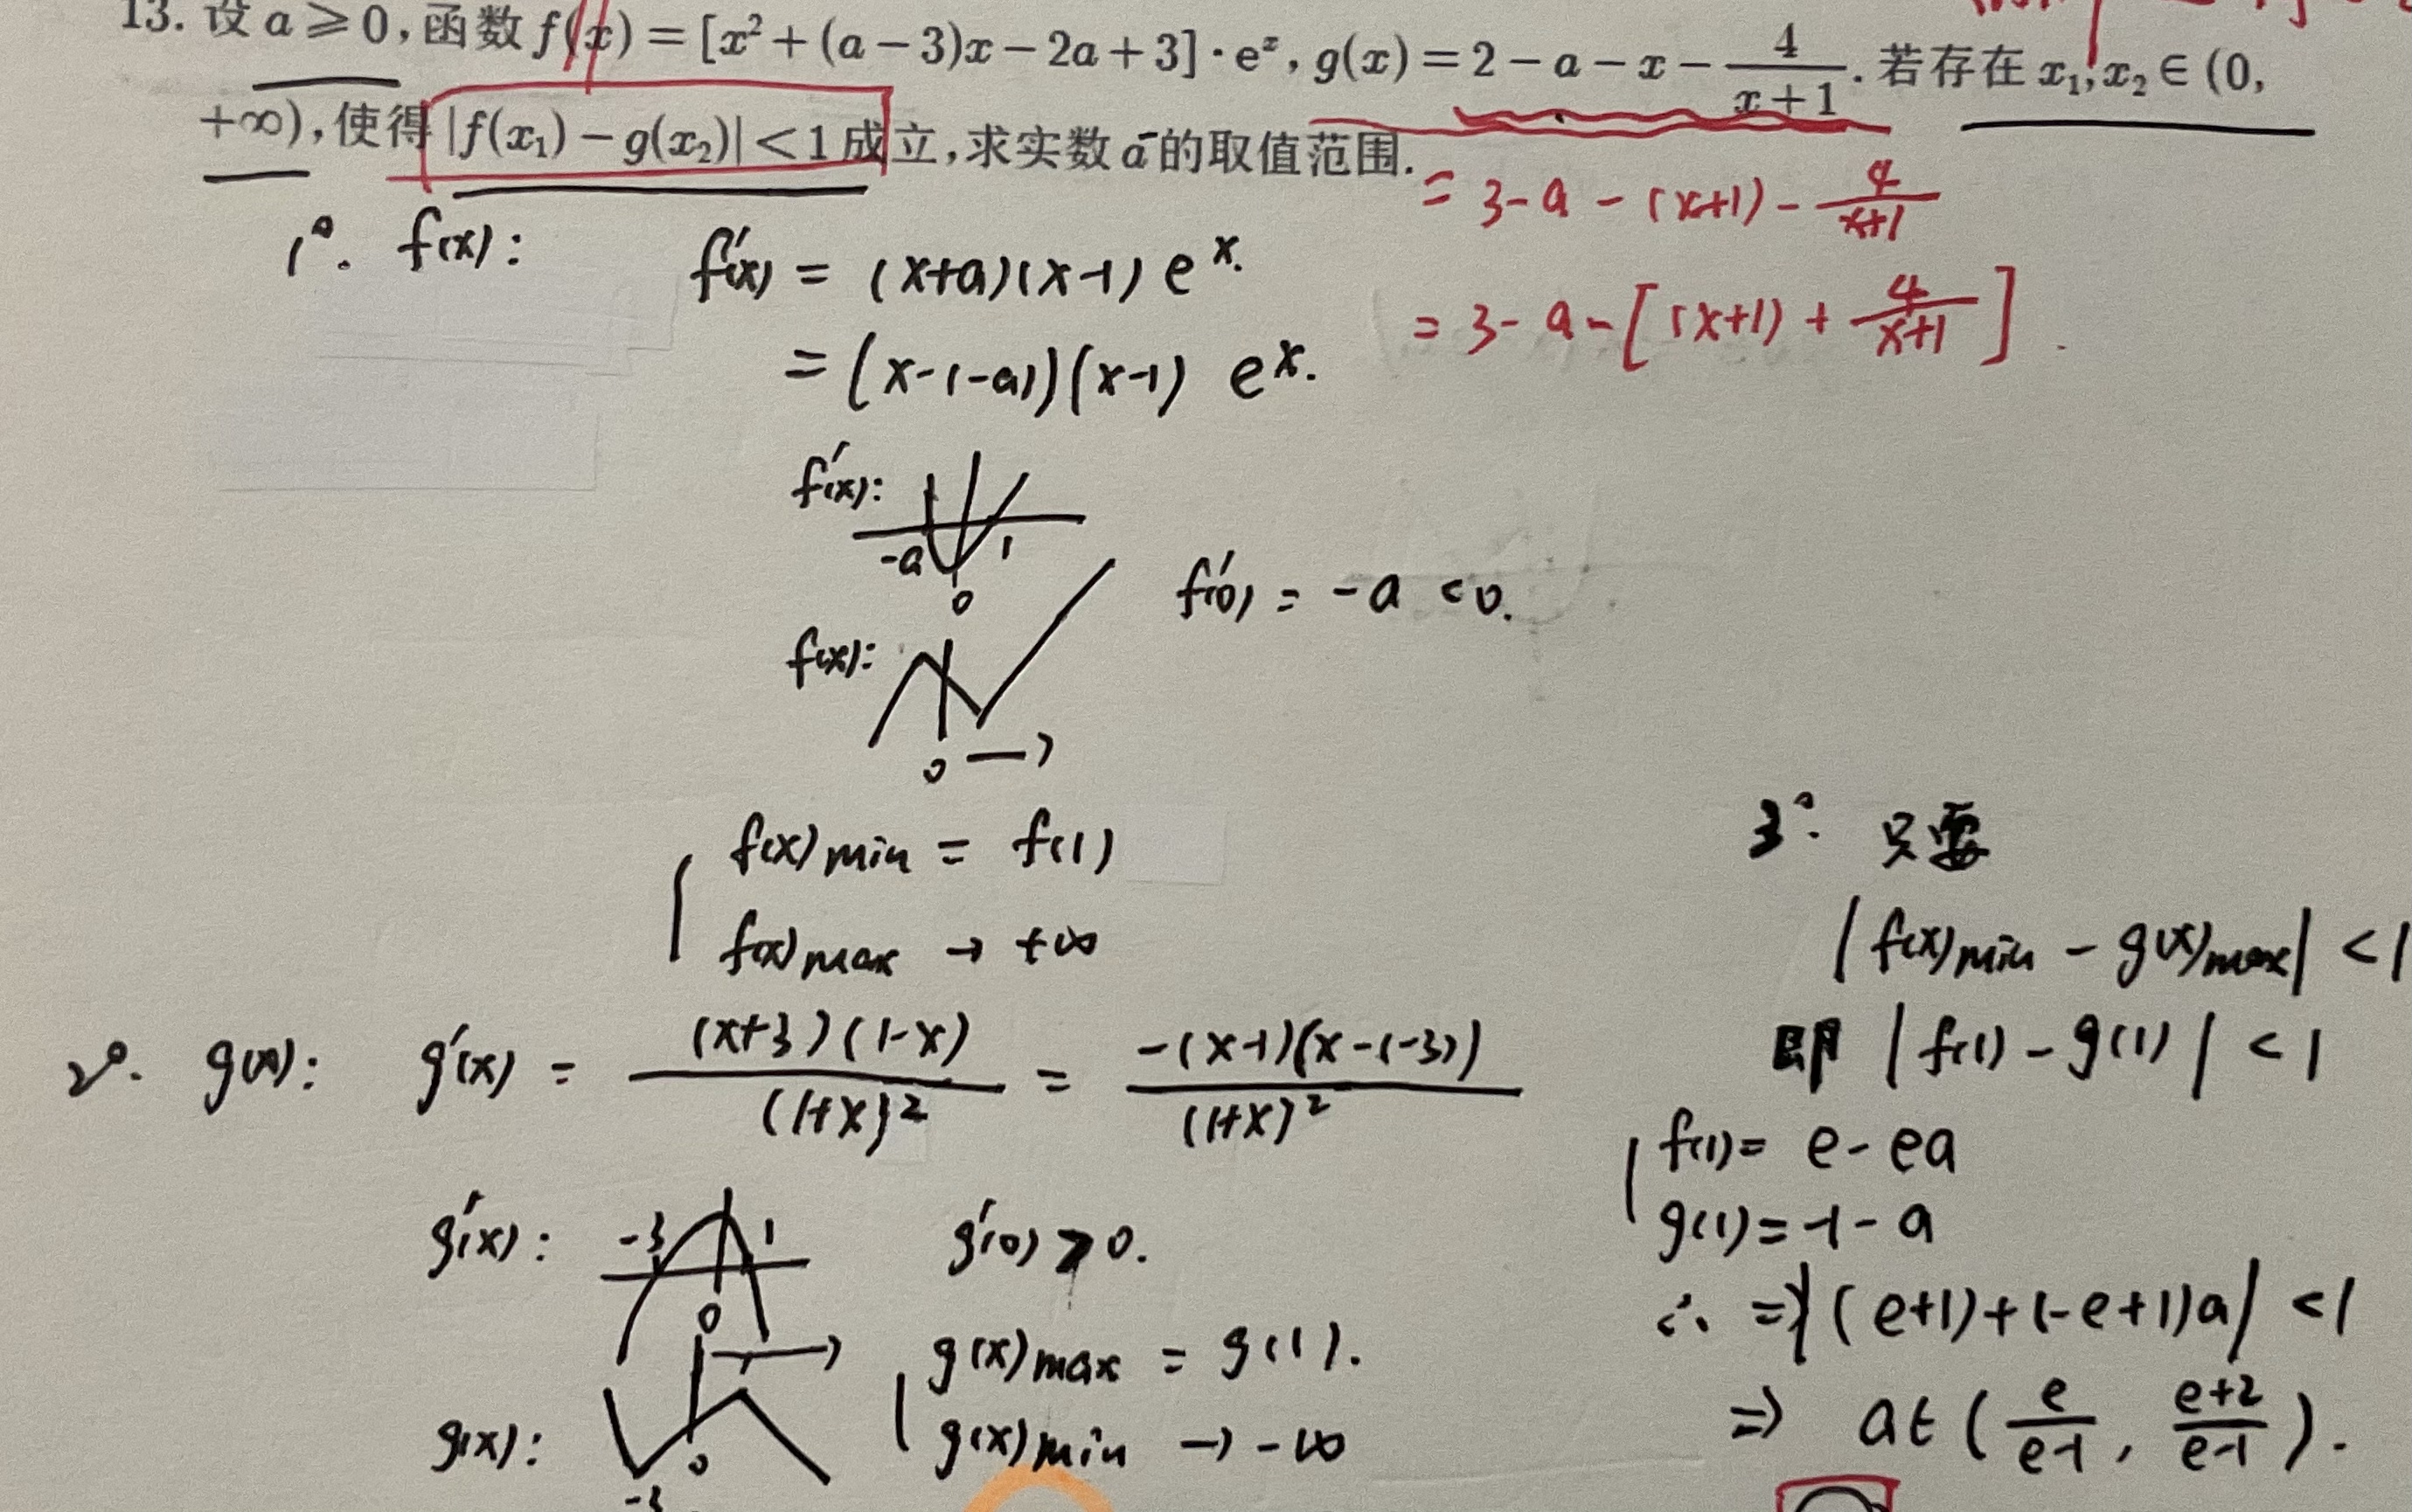 13. 设 a ⩾ 0, 函数 f(x) = [x² + (a − 3)x − 2a + 3] · eˣ, g(x) = 2 − a − x − 4/(x+1). 若存在 x₁, x₂ ∈ (0,
+∞), 使得 |f(x₁) − g(x₂)| < 1 成立, 求实数 a 的取值范围.
= 3 − a − (x+1) − 4/(x+1)
= 3 − a − [(x+1) + 4/(x+1)].
1°. f(x): f′(x) = (x+a)(x−1) eˣ.
= (x−(−a))(x−1) eˣ.
f′(x): −a 1
0
f′(0) = −a < 0.
f(x):
0 →
f(x)min = f(1)
f(x)max → +∞
2°. g(x): g′(x) = (x+3)(1−x)/(1+x)² = −(x−1)(x−(−3))/(1+x)²
g′(x): −3 1 g′(0) > 0.
0
g(x)max = g(1).
g(x): 0 g(x)min → −∞
−3
3°. 只要
|f(x)min − g(x)max| < 1
即 |f(1) − g(1)| < 1
f(1) = e − ea
g(1) = −1 − a
∴ ⇒ |(e+1)+(−e+1)a| < 1
⇒ a∈(e/(e−1), (e+2)/(e−1)).